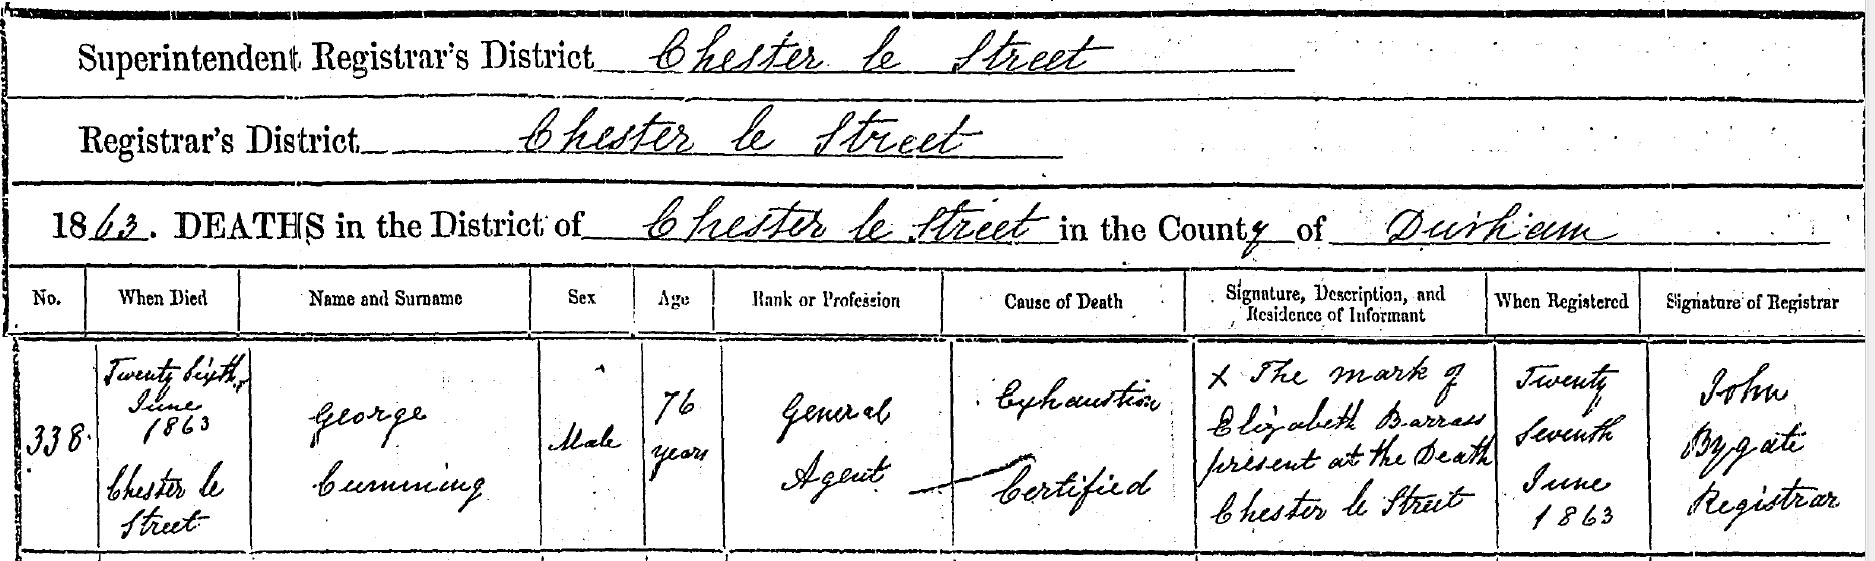 Superintendent Registrar's District Chester le Street
Registrar's District Chester le Street
1863. DEATHS in the District of Chester le Street in the County of Durham
No. When Died Name and Surname Sex Age Rank or Profession Cause of Death Signature, Description, and Residence of Informant When Registered Signature of Registrar
338.
Twenty Sixth
June
1863
Chester le
Street
George
Cumming
Male
76
years
General
Agent
Exhaustion
Certified
X The mark of
Elizabeth Barrass
present at the Death
Chester le Street
Twenty
Seventh
June
1863
John
Bygate
Registrar